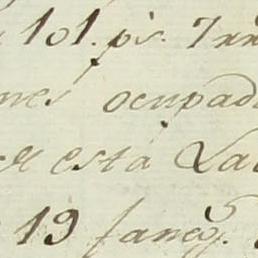 101. ps. 7 rr
mes ocupad
esta La
19 faneg.